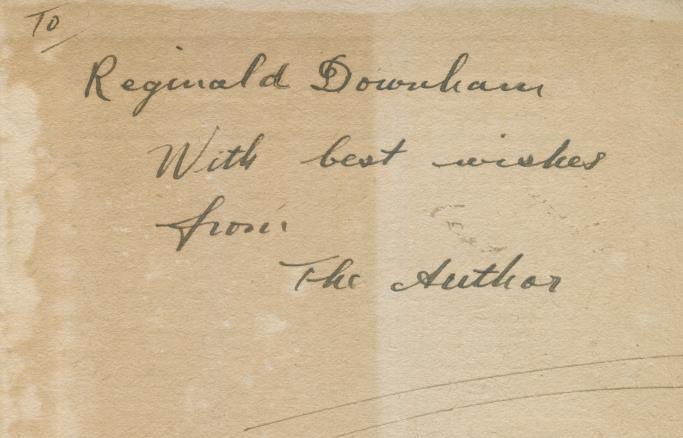 To
Reginald Downham
With best wishes
from
The Author